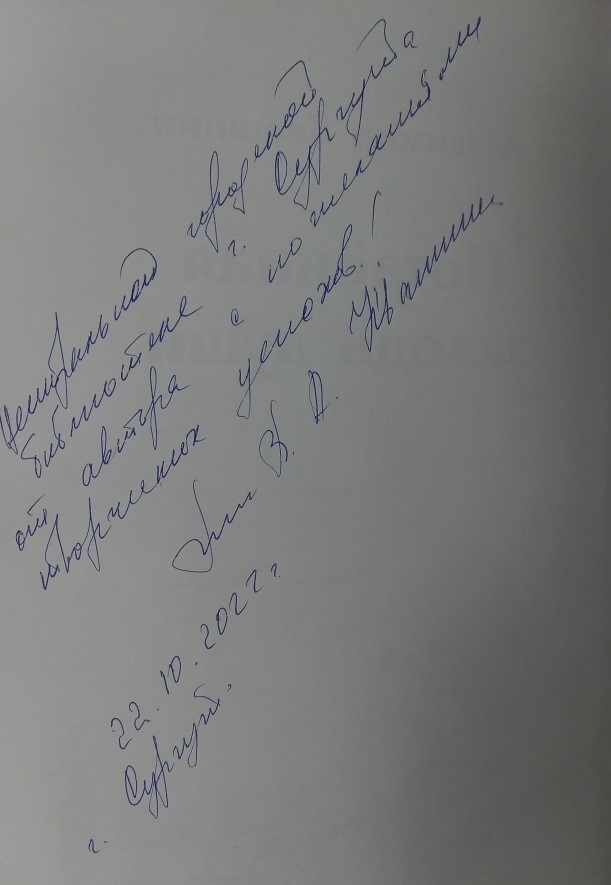 Центральной городской
библиотеке г. Сургута
от автора с пожеланиями
творческих успехов!
В. А.
22.10.2022 г.
г. Сургут.